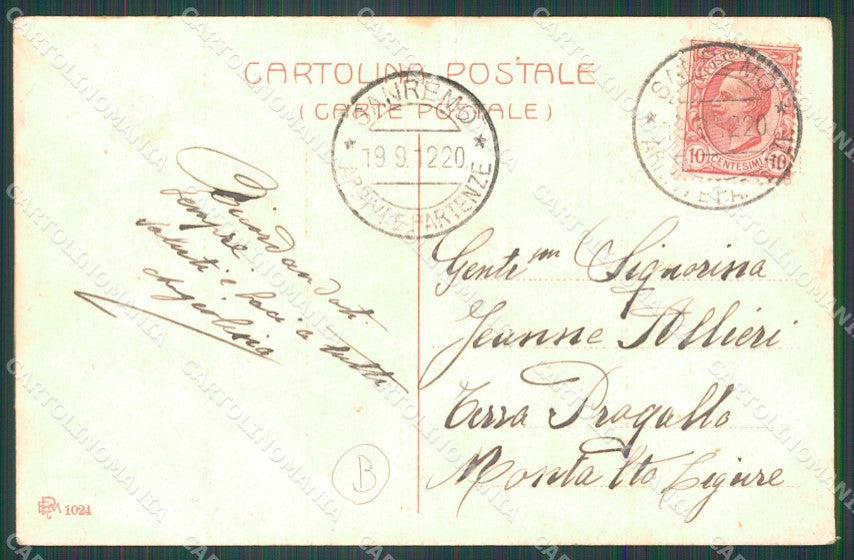 CARTOLINA POSTALE
(CARTE POSTALE)
SANREMO
19 9.12 20
ARRIVI E PARTENZE
SANREMO
12 20
POSTE
10 CENTESIMI 10
Ricordandoti
sempre.
saluti e baci a tutti
Angiolina
Gent.ma Signorina
Jeanne Allieri
Terra Pragallo
Montalto Ligure
B
1024
CARTOLINOMANIA